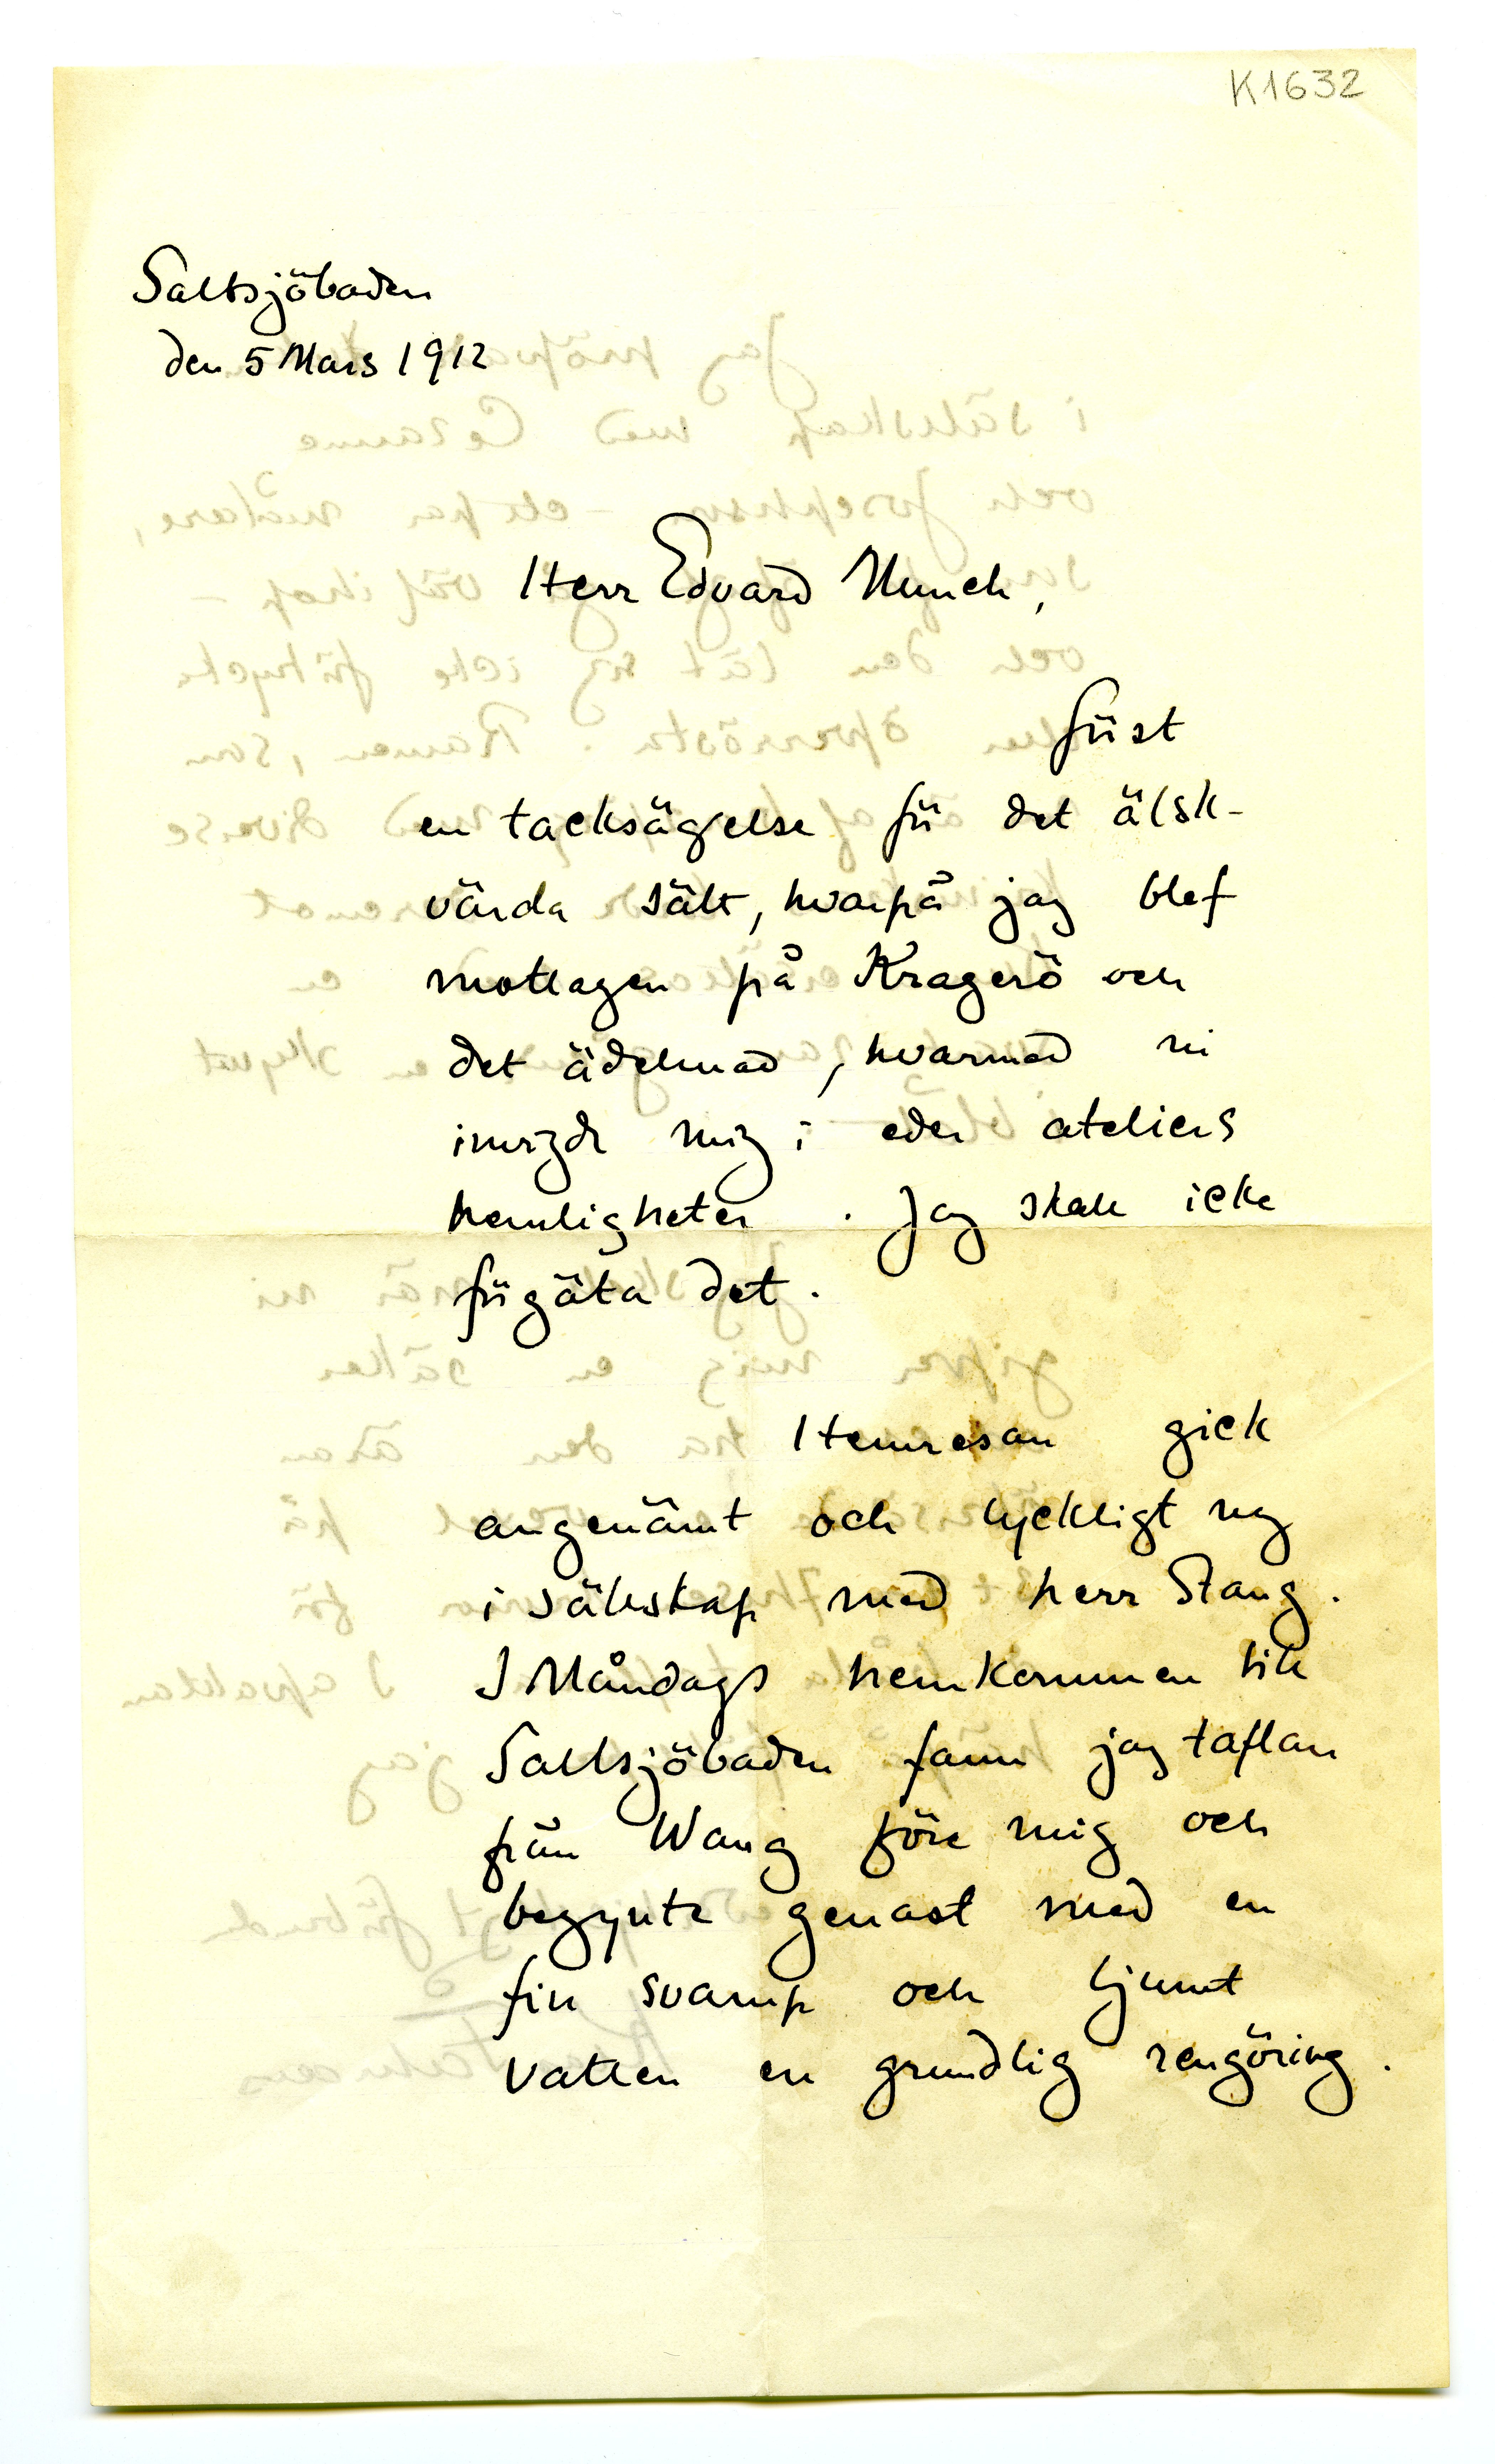 K1632
Saltsjöbaden
den 5 Mars 1912
Herr Edvard Munch,
först
en tacksägelse för det älsk-
värda sätt, hvarpå jag blef
mottagen på Kragerö och
det ädelmod, hvarmed ni
invigde mig i eder ateliers
hemligheter. Jag skall icke
förgäta det.
Hemresan gick
angenämt och lyckligt
i sällskap med herr Stang.
I Måndags hemkommen till
Saltsjöbaden fann jag taflan
från Wang före mig och
begynte genast med en
fin svamp och ljumt
vatten en grundlig rengöring.